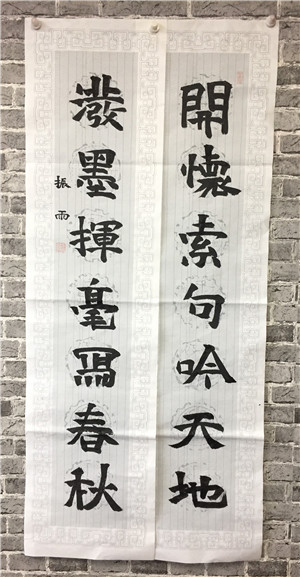 開懷索句吟天地
潑墨揮毫寫春秋
振雨